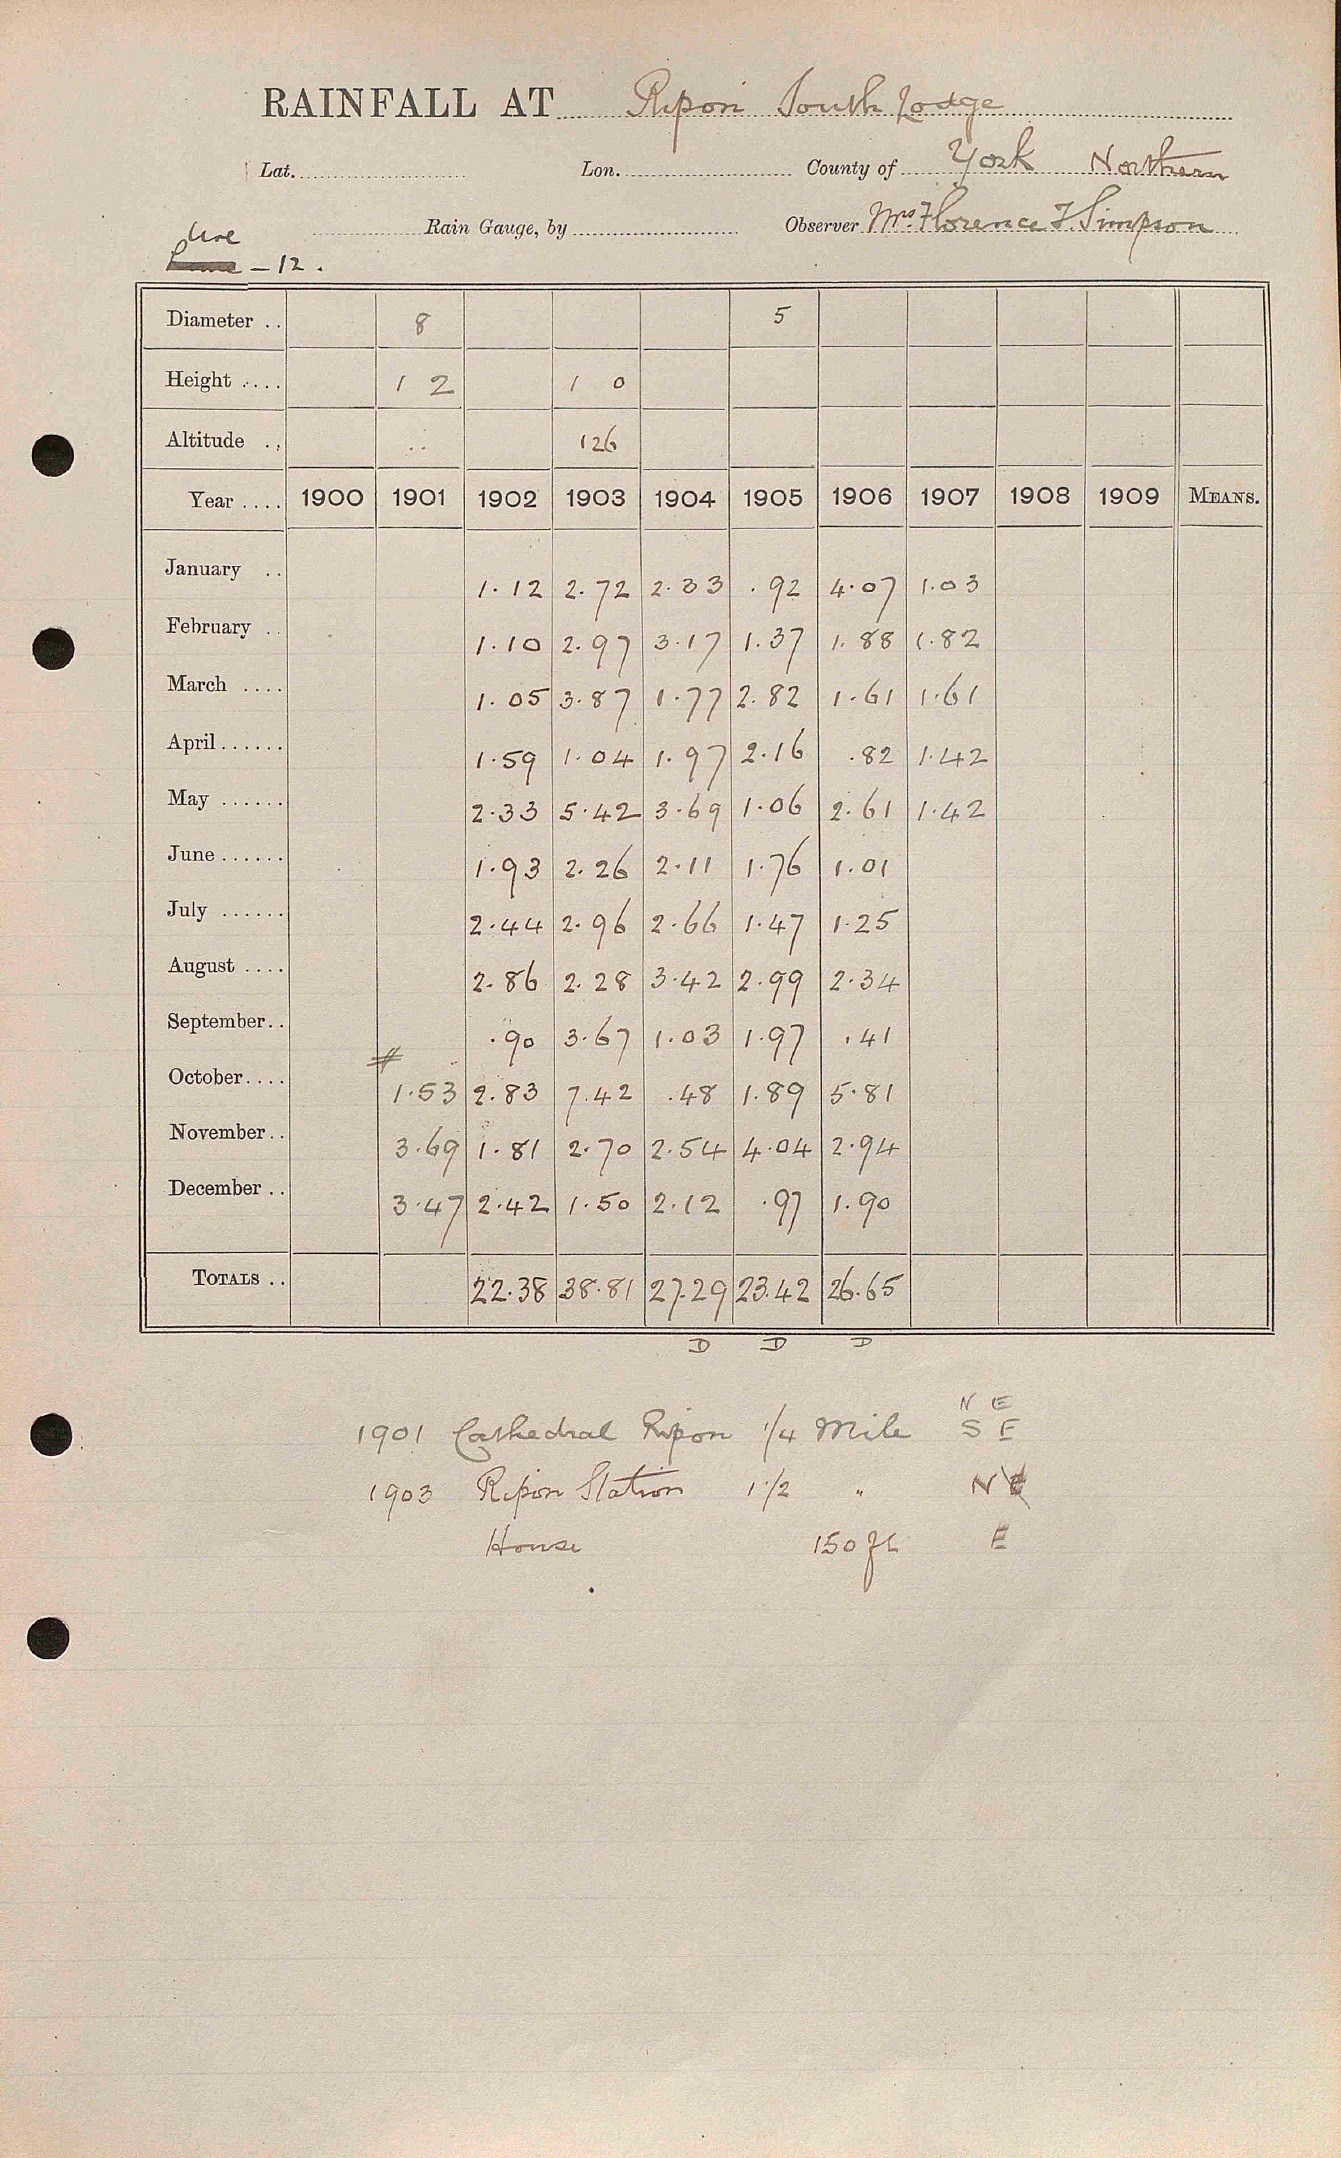 RAINFALL AT Ripon South Lodge
Lat. Lon. County of York Northern
Rain Gauge, by Observer Mrs. Florence F. Simpson
Ure
- 12.
Diameter .. 8 5
Height .... 1 2 1 0
Altitude .. .. 126
Year .... 1900 1901 1902 1903 1904 1905 1906 1907 1908 1909 MEANS.
January .. 1.12 2.72 2.33 .92 4.07 1.03
February .. 1.10 2.97 3.17 1.37 1.88 1.82
March .... 1.05 3.87 1.77 2.82 1.61 1.61
April ...... 1.59 1.04 1.97 2.16 .82 1.42
May ...... 2.33 5.42 3.69 1.06 2.61 1.42
June ...... 1.93 2.26 2.11 1.76 1.01
July ...... 2.44 2.96 2.66 1.47 1.25
August .... 2.86 2.28 3.42 2.99 2.34
September.. .90 3.67 1.03 1.97 .41
October.... # 1.53 2.83 7.42 .48 1.89 5.81
November.. 3.69 1.81 2.70 2.54 4.04 2.94
December .. 3.47 2.42 1.50 2.12 .97 1.90
TOTALS .. 22.38 38.81 27.29 23.42 26.65
D D D
N E
1901 Cathedral Ripon 1/4 Mile S E
1903 Ripon Station 1 1/2 " N E
House 150 ft E